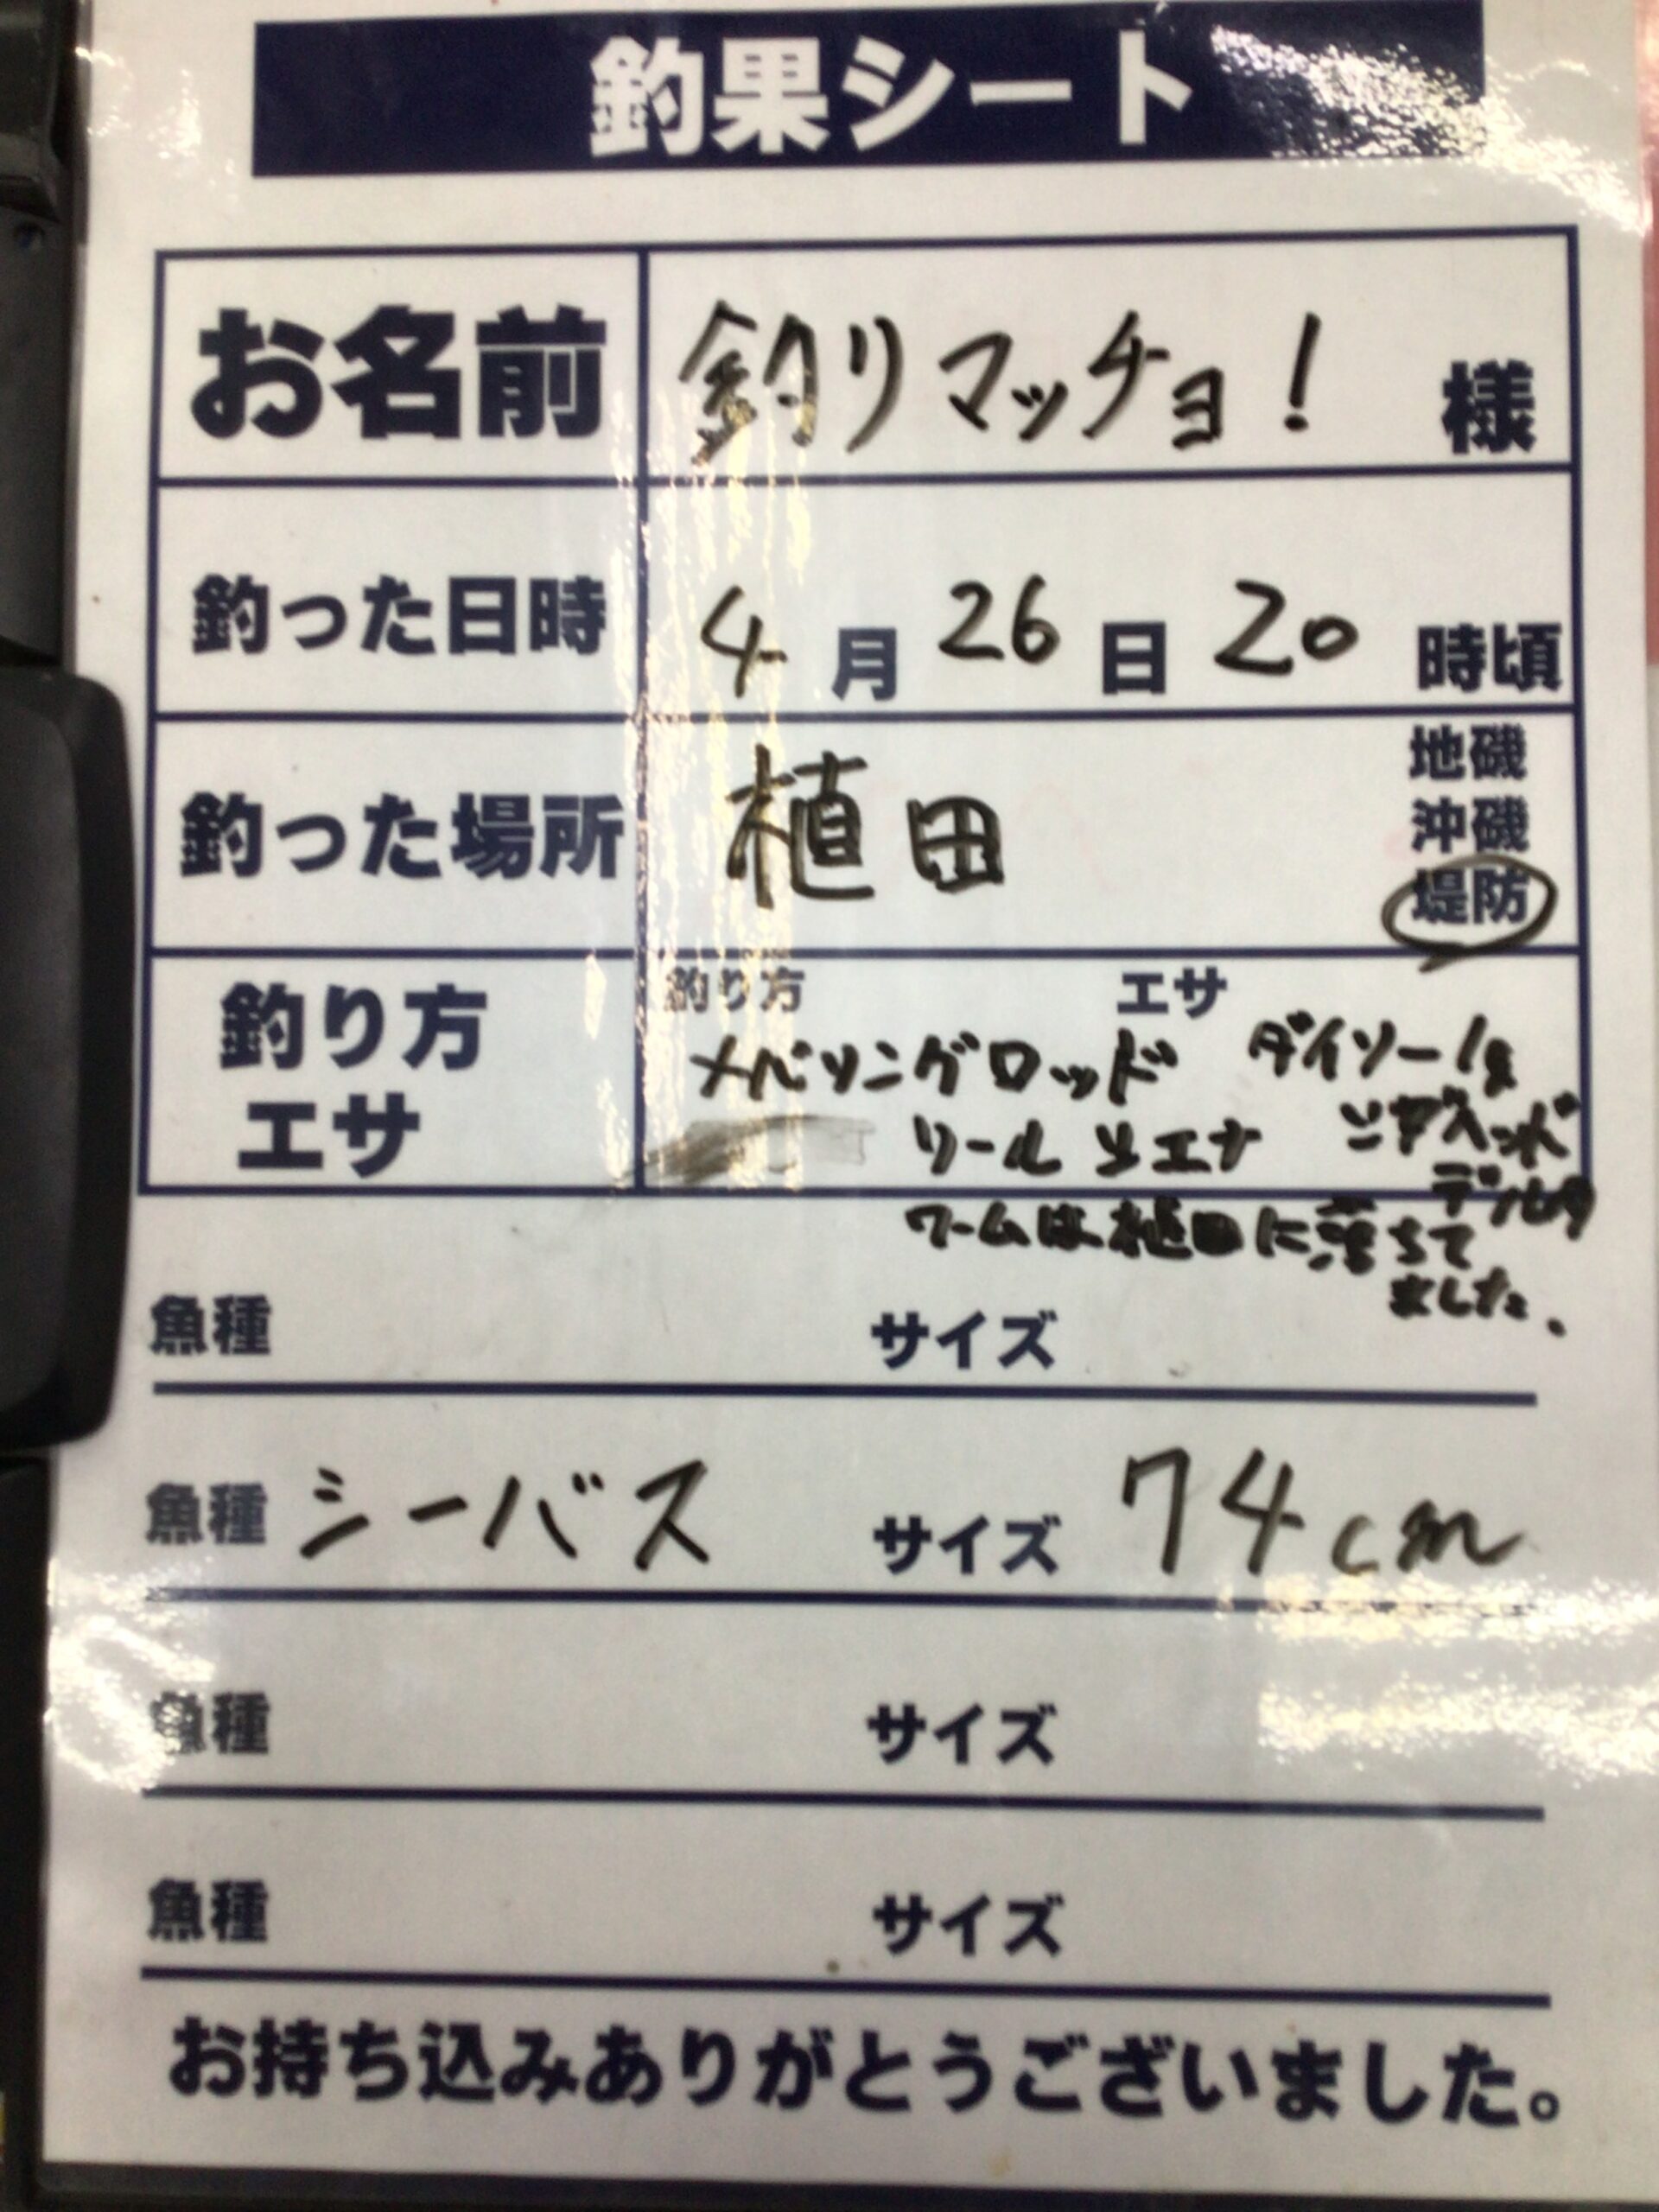 釣果シート
お名前 釣りマッチョ! 様
釣った日時 4月26日20時頃
釣った場所 植田
地磯
沖磯
堤防
釣り方
エサ
釣り方 エサ
メバリングロッド ダイソー1g
リール ソエナ ジグヘッド
デルタ
ワームは植田に落ちて
ました。
魚種 サイズ
魚種 シーバス サイズ 74cm
魚種 サイズ
魚種 サイズ
お持ち込みありがとうございました。